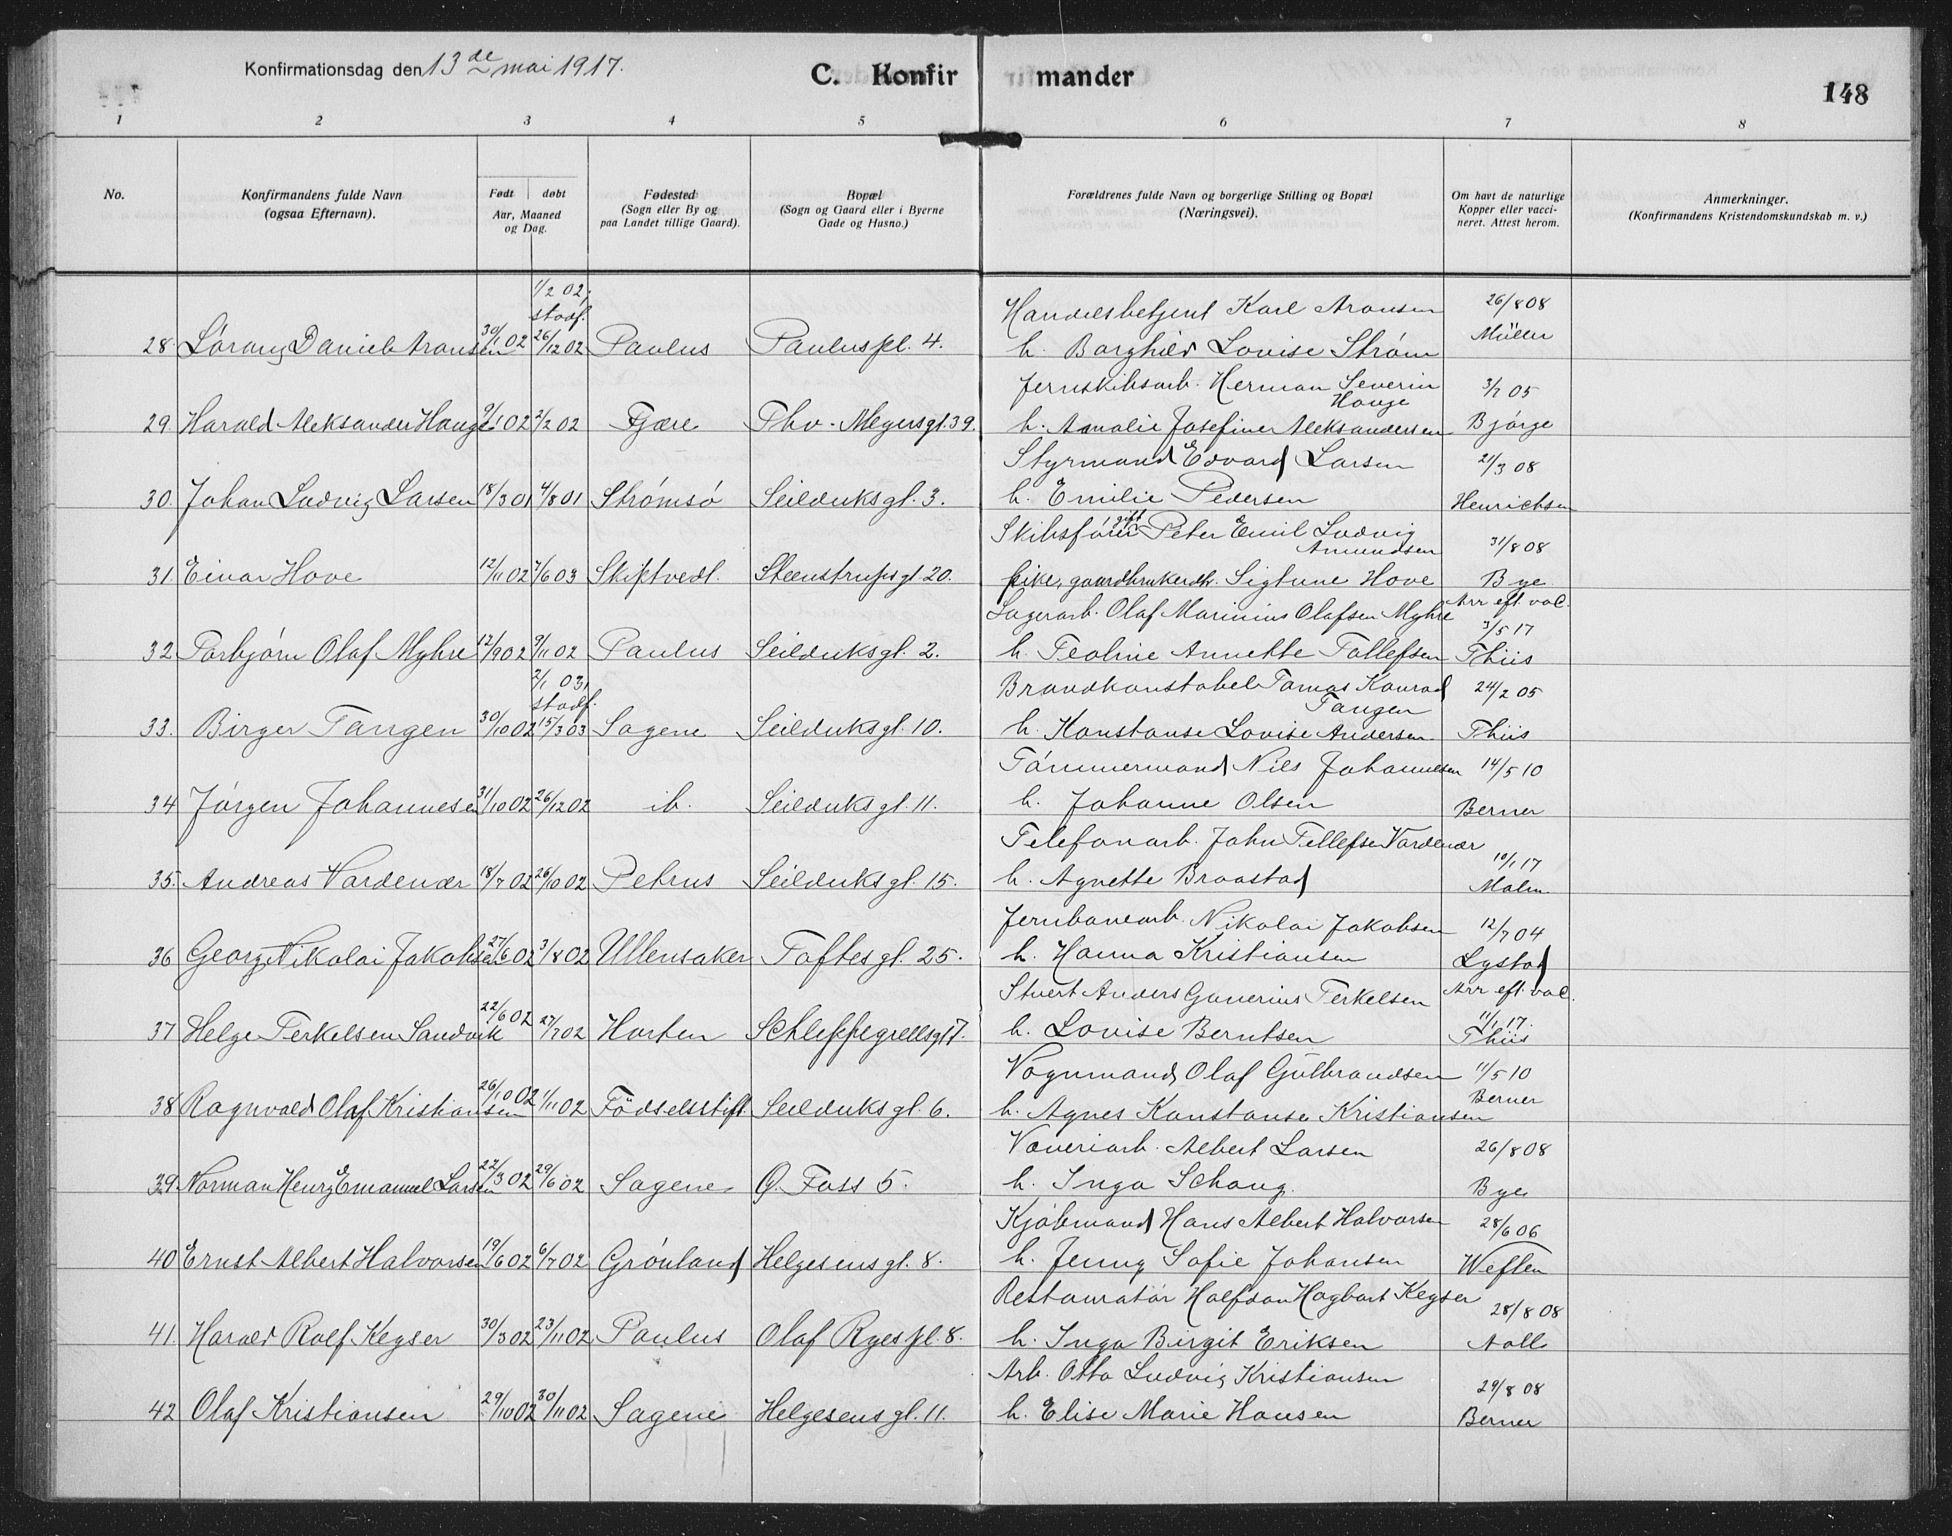 Konfirmationsdag den 13de mai 1917.
C. Konfirmander
148
1 2 3 4 5 6 7 8
No.
Konfirmandens fulde Navn (ogsaa Efternavn).
Født døbt Aar, Maaned og Dag.
Fødested (Sogn eller By og paa Landet tillige Gaard).
Bopæl (Sogn og Gaard eller i Byerne Gade og Husno.)
Forældrenes fulde Navn og borgerlige Stilling og Bopæl (Næringsvei).
Om havt de naturlige Kopper eller vaccineret. Attest herom.
Anmerkninger. (Konfirmandens Kristendomskundskab m. v.)
1/2 02, stadf.
Handelsbetjent Karl Aronsen 26/8 08
28 Daniel Aronsen 30/1 02 26/12 02 Paulus Pauluspl. 4. h. Borghild Lovise Strøm Müller
Jernskibsarb. Herman Severin Hauge 3/7 05
29. Harald Aleksander Hauge 9/1 02 2/2 02 Fjære Thv. Meyersgt. 39. h. Amalie Josefine Aleksandersen Bjørge
Styrmand Edvard Larsen 21/3 08
30. Johan Ludvig Larsen 18/3 01 4/8 01 Strømsø Seilduksgt. 3. h. Emilie Pedersen Henrichsen
Skibsfører gift Peter Emil Ludvig Amundsen 31/8 08
31. Einar Hove 12/11 02 7/6 03 Skiptvedt. Steenstrupsgt. 20. pike, gaardbrukerdtr. Sigtune Hove Bye
Lagerarb. Olaf Marinius Olafsen Myhre Arr eft. vac. 3/5 17
32. Torbjørn Olaf Myhre 12/9 02 9/11 02 Paulus Seilduksgt. 2. h. Teoline Annette Tollefsen Thiis
2/1 03, stadf.
Brandkonstabel Tomas Konrad Tangen 24/2 05
33. Birger Tangen 30/10 02 15/3 03 Sagene Seilduksgt. 10. h. Konstanse Lovise Andersen Thiis
Tømmermand Nils Johannesen 14/5 10
34 Jørgen Johannesen 31/10 02 26/12 02 ib. Seilduksgt. 11. h. Johanne Olsen Berner
Telefonarb. John Tellefsen Vardenær 10/1 17
35. Andreas Vardenær 18/7 02 26/10 02 Petrus Seilduksgt. 15. h. Agnette Braastad Malm
Jernbanearb. Nikolai Jakobsen 12/7 04
36 Georg Nikolai Jakobsen 27/6 02 3/8 02 Ullensaker Toftesgt. 25. h. Hanna Kristiansen Lystad
Stuert Anders Gunerius Terkelsen Arr eft. vac. 11/1 17.
37 Helge Terkelsen Sandvik 22/6 02 27/7 02 Horten Schleppegrellsgt 7. h. Lovise Berntsen Thiis
Vognmand Olaf Gulbrandsen 11/5 10
38 Ragnvald Olaf Kristiansen 26/10 02 1/11 02 Fødselsstift. Seilduksgt. 6. h. Agnes Konstanse Kristiansen Berner
Væveriarb. Albert Larsen 26/8 08
39. Norman Henry Emanuel Larsen 22/3 02 29/6 02 Sagene Ø. Foss 5. h. Inga Schaug. Bye
Kjøbmand Hans Albert Halvorsen 28/6 06
40 Ernst Albert Halvorsen 19/6 02 6/7 02 Grønland Helgesensgt. 8. h. Jenny Sofie Johansen Weflen
Restauratør Halfdan Hagbart Keyser 28/8 08
41. Harald Rolf Keyser 30/3 02 23/11 02 Paulus Olaf Ryespl. 8. h. Inga Birgit Eriksen Aall
Arb. Otto Ludvig Kristiansen 29/8 08
42 Olaf Kristiansen 29/10 02 30/11 02 Sagene Helgesensgt. 11. h. Elise Marie Hansen Berner